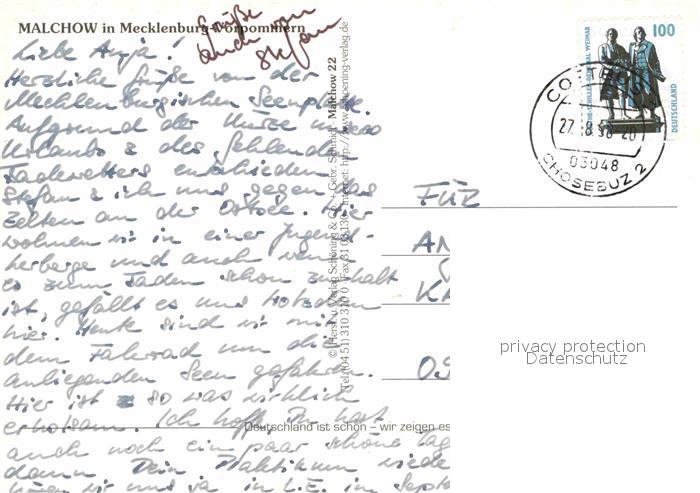 MALCHOW in Mecklenburg-Vorpommern
Grüße
auch von
Stefan
Liebe Anja!
Herzliche Grüße von der
Mecklenburgischen Seenplatte.
Aufgrund der Kürze
Urlaubs & des fehlenden
Badewetters entschieden
Stefan & ich uns gegen das
Zelten an der Ostsee. Hier
wohnen wir in einer Jugend-
herberge und auch wenn
es zum Baden schon zu kalt
ist, gefällt es uns trotzdem
hier. Heute sind wir mit
dem Fahrrad um die
anliegenden Seen gefahren.
Hier ist so was wirklich
erholsam. Ich hoffe, Du hast
auch noch ein paar schöne Tage
dann Dein Praktikum wieder
wir uns ja in L.E. im Septe
© Herst. u. Verlag Schöning & Co. + Gebr. Schmidt · Malchow 22
Tel. (04 51) 310 310 0 · Fax 31 03 130 · Internet: http://www.schoening-verlag.de
Deutschland ist schön – wir zeigen es
100
DEUTSCHLAND
GOETHE-SCHILLER-DENKMAL WEIMAR
COTTBUS
27.8.98-20
03048
CHOSEBUZ 2
FÜR
AN
KA
privacy protection
Datenschutz